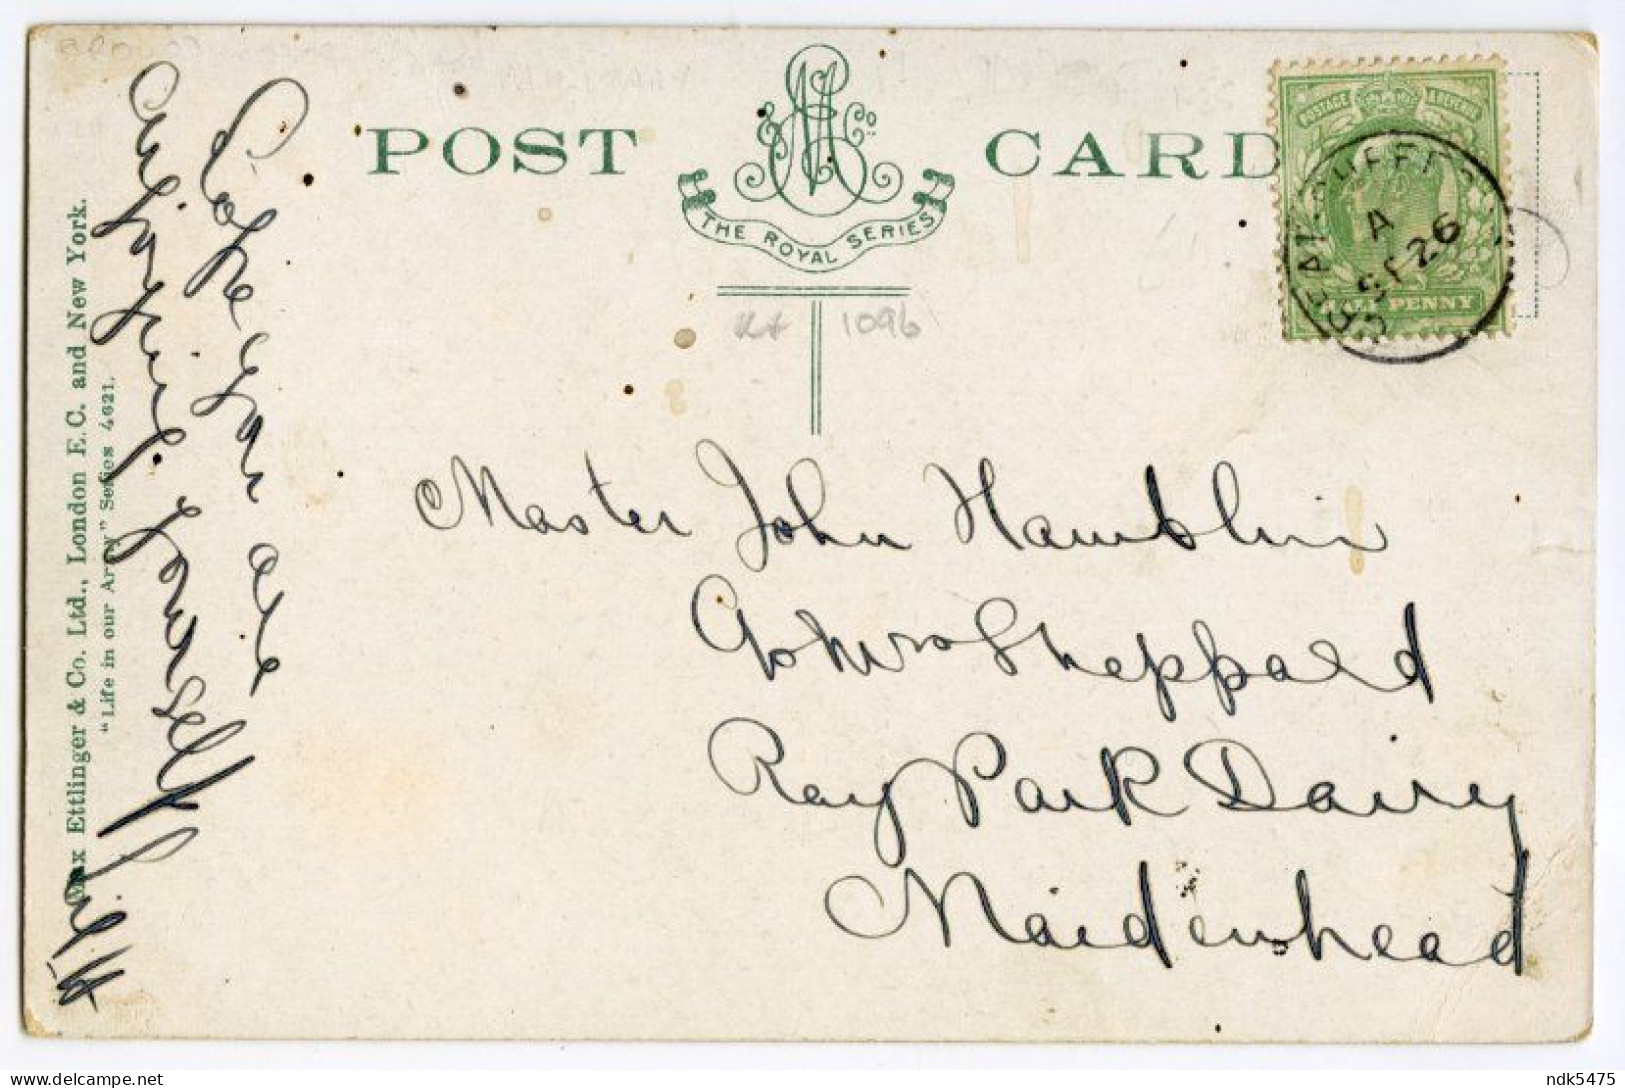 POST CARD
M E & Co.
THE ROYAL SERIES
POSTAGE & REVENUE
HALFPENNY
GREAT SHEFFORD
A
SP 26
1096
Master John Hamblin
c/o Mrs Sheppard
Ray Park Dairy
Maidenhead
Hope you are
enjoying yourself
Max Ettlinger & Co. Ltd., London E.C. and New York.
"Life in our Army" Series 4621.
ndk5475